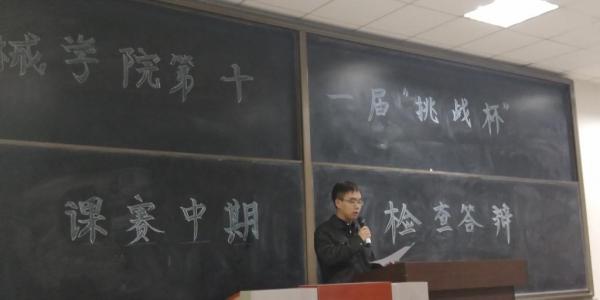 械学院第十一届“挑战杯”
课赛中期检查答辩